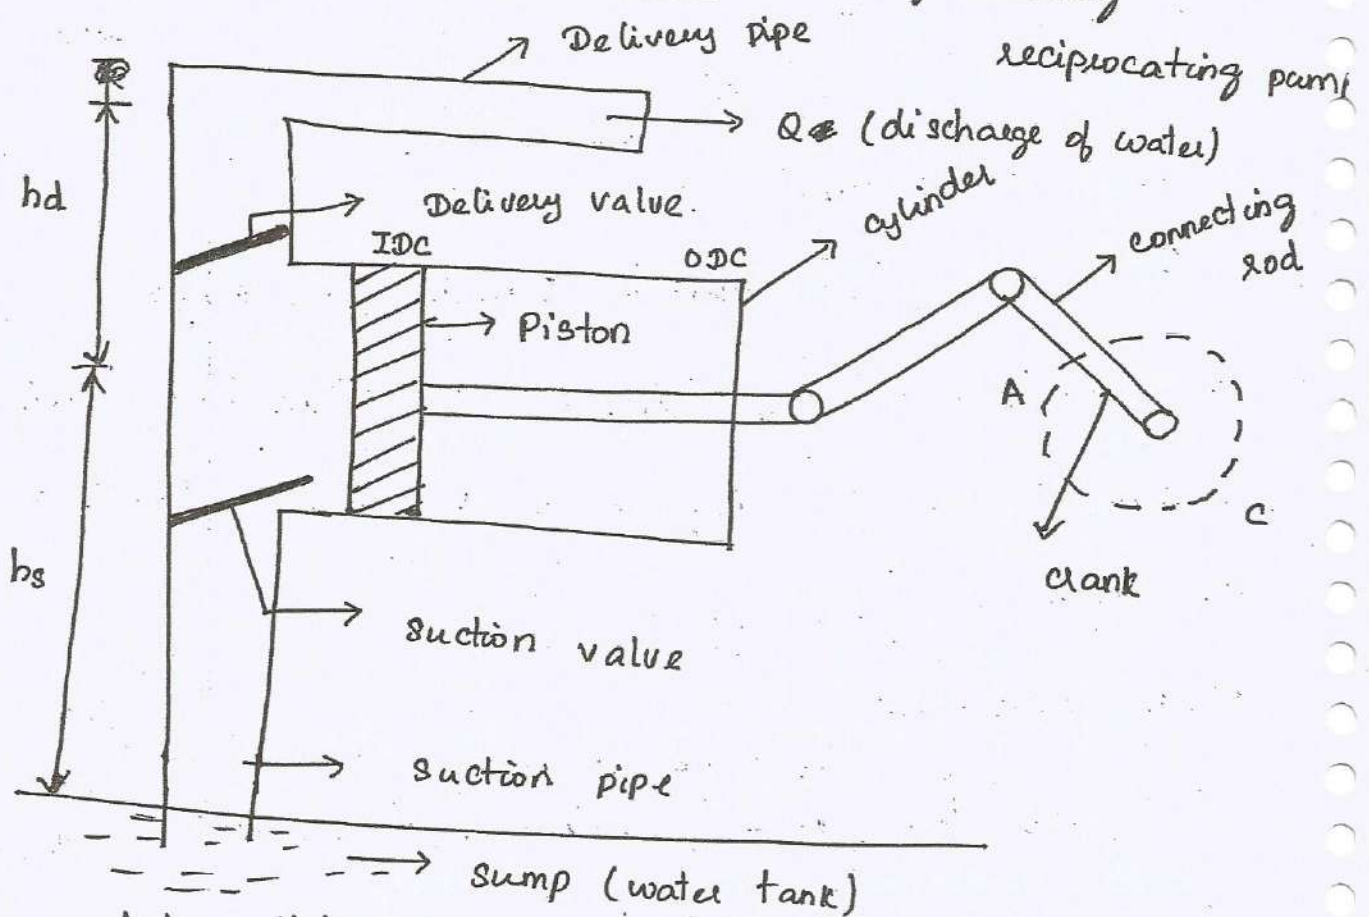 Delivery pipe
reciprocating pum
Q (discharge of water)
hd
Delivery value.
cylinder
connecting
rod
IDC
ODC
Piston
A
C
crank
hs
suction value
suction pipe
sump (water tank)